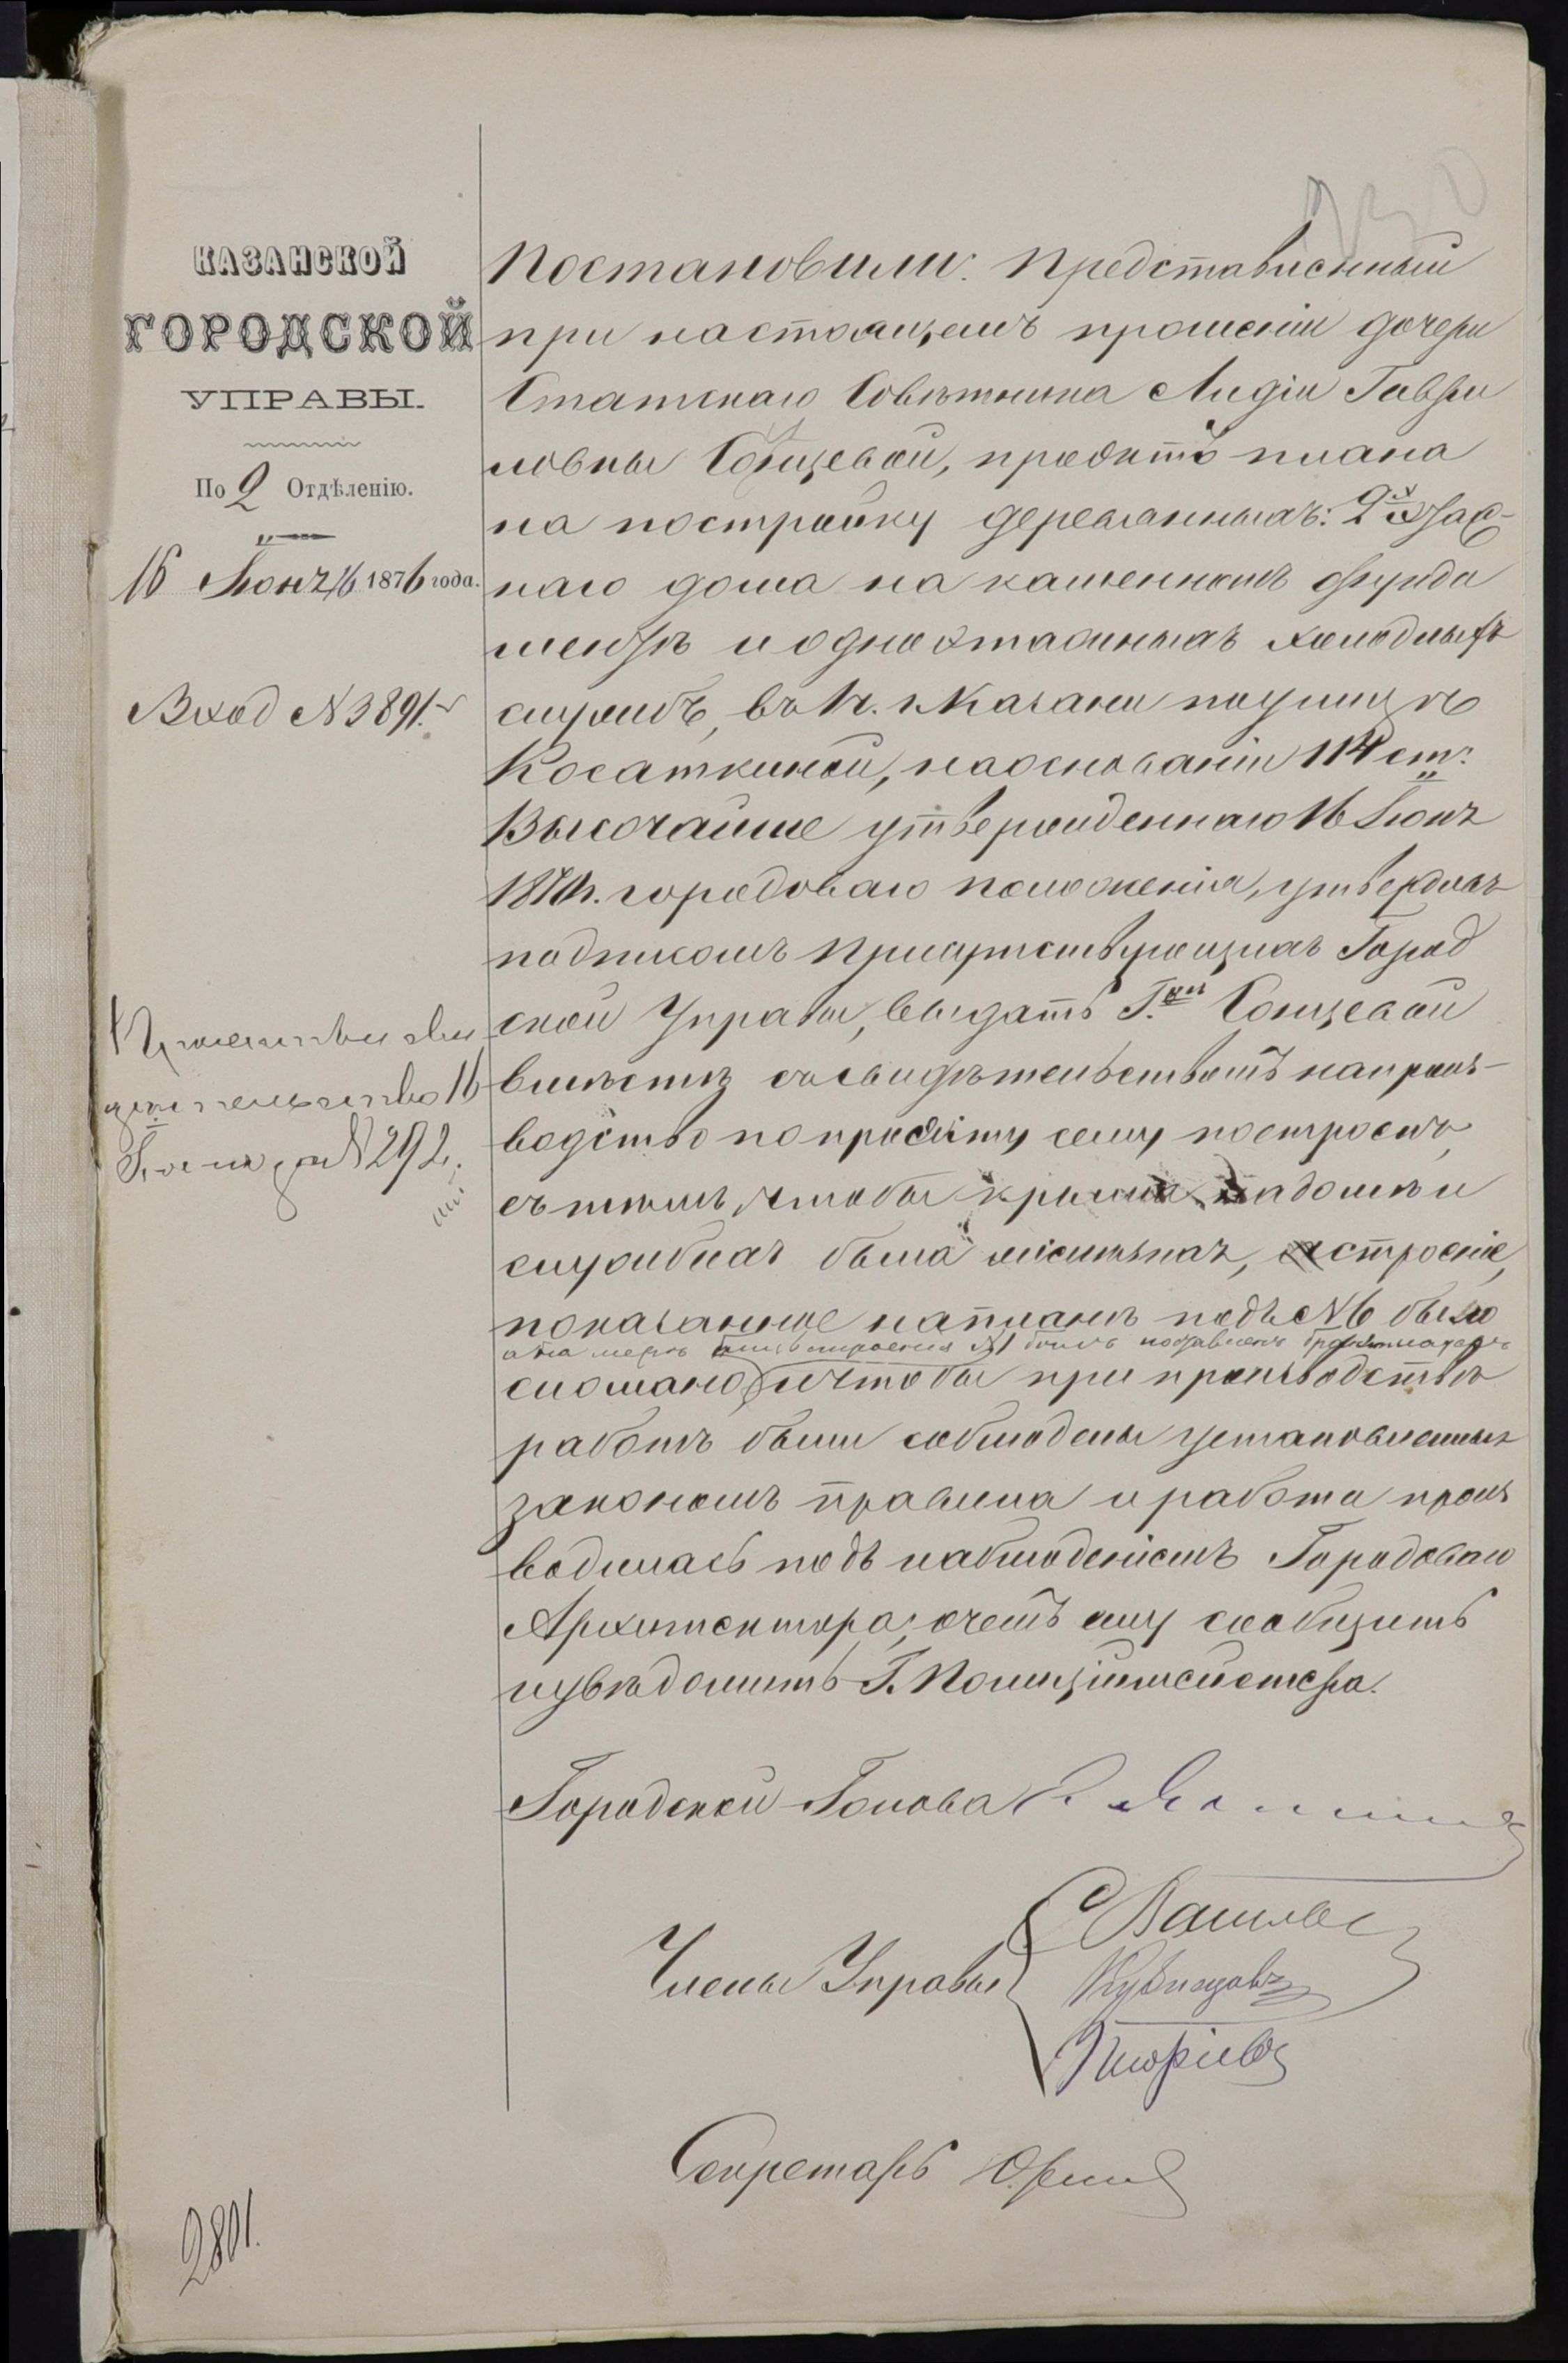 КАЗАНСКОЙ
ГОРОДСКОЙ
УПРАВЫ.
По 2 Отдѣленію.
16 Іюня 1876 года.
Вход № 3891.
292
2801.
Постановили: Представленный
при настоящемъ прошеніи дочери
Статскаго Совѣтника Лидіи Гаври
ловны Сонцевой, проэктъ плана
на постройку деревянныхъ: 2хъ этаж-
наго дома на каменномъ фунда
ментѣ и одноэтажныхъ холодныхъ
службъ, въ г. Казани по улицѣ
Косаткиной, на основаніи 114 ст.
Высочайше утвержденнаго 16 Іюня
1870 г. городоваго положенія, утвердивъ
подписомъ Присутствующихъ Город
ской Управы, выдать Г.жи Сонцевой
вмѣстѣ съ свидѣтельствомъ на произ-
водство по проэкту сему построекъ,
съ тѣмъ, чтобы крыша на домѣ и
службахъ была желѣзная, строеніе,
показанное на планѣ подъ № 6 было
а на мѣстѣ строенія №1 былъ поставленъ брантмауеръ
сломано и чтобы при производствѣ
работъ были соблюдены установленныя
закономъ правила и работа произ
водилась подъ наблюденіемъ Городоваго
Архитектора, о чемъ ему сообщить
и увѣдомить Г. Полиціймейстера.
Городской Голова
Члены Управы
Кузнецовъ
Секретарь